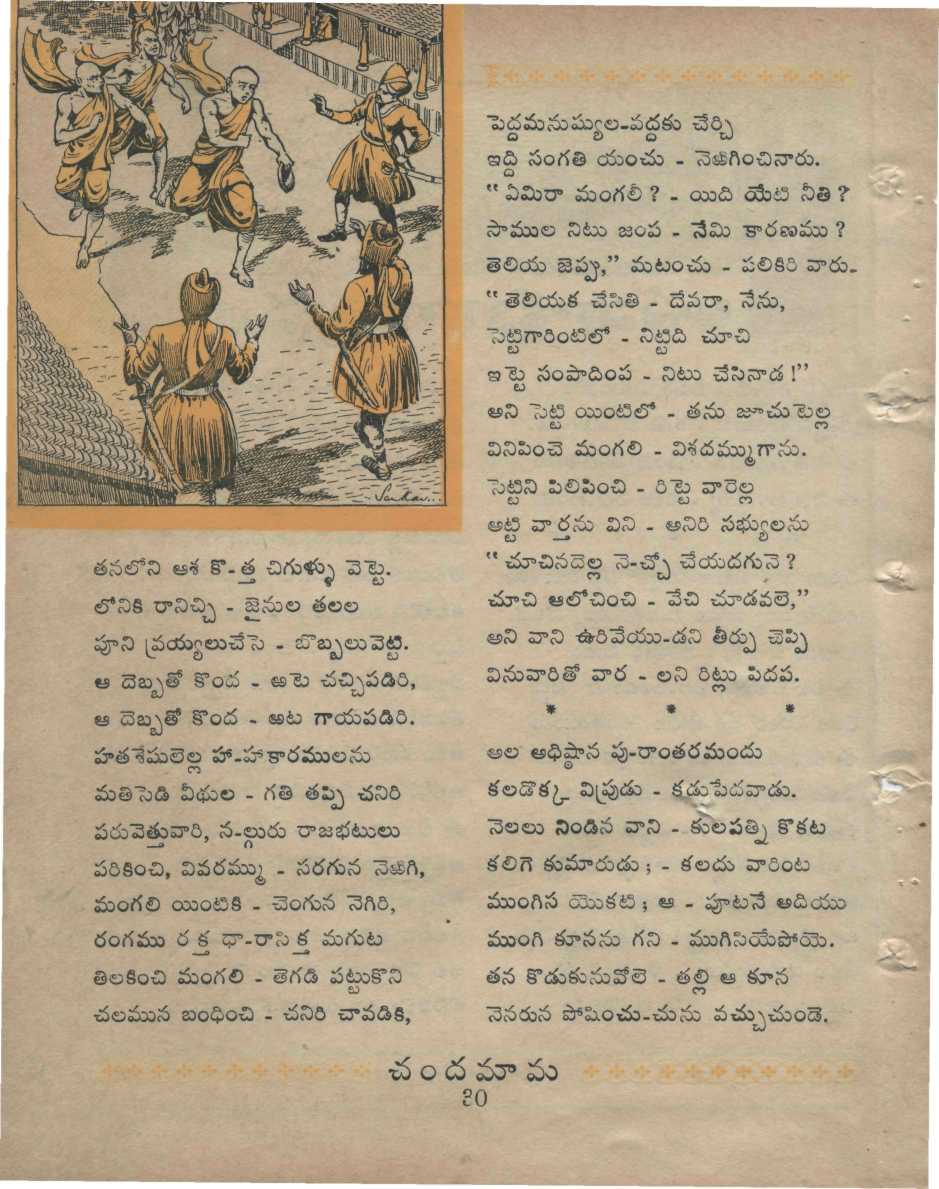 తనలోని ఆశ కొ-త్త చిగుళ్ళు వెట్టె.
లోనికి రానిచ్చి - జైనుల తలల
పూని వ్రయ్యలుచేసె - బొబ్బలువెట్టి.
ఆ దెబ్బతో కొంద - ఱటె చచ్చిపడిరి,
ఆ దెబ్బతో కొంద - ఱట గాయపడిరి.
హతశేషులెల్ల హా-హాకారములను
మతిసెడి వీథుల - గతి తప్పి చనిరి
పరువెత్తువారి, న-ల్గురు రాజభటులు
పరికించి, వివరమ్ము - సరగున నెఱిగి,
మంగలి యింటికి - చెంగున నెగిరి,
రంగము రక్త ధా-రాసిక్త మగుట
తిలకించి మంగలి - తెగడి పట్టుకొని
చలమున బంధించి - చనిరి చావడికి,
పెద్దమనుష్యుల-వద్దకు చేర్చి
ఇద్ది సంగతి యంచు - నెఱిగించినారు.
“ ఏమిరా మంగలీ ? - యిది యేటి నీతి ?
సాముల నిటు జంప - నేమి కారణము ?
తెలియ జెప్పు,” మటంచు - పలికిరి వారు-
“ తెలియక చేసితి - దేవరా, నేను,
సెట్టిగారింటిలో - నిట్టిది చూచి
ఇట్టె సంపాదింప - నిటు చేసినాడ !”
అని సెట్టి యింటిలో - తను జూచుటెల్ల
వినిపించె మంగలి - విశదమ్ముగాను.
సెట్టిని పిలిపించి - రిట్టె వారెల్ల
అట్టి వార్తను విని - అనిరి సభ్యులను
“ చూచినదెల్ల నె-చ్చో చేయదగునె ?
చూచి ఆలోచించి - వేచి చూడవలె,”
అని వాని ఉరివేయు-డని తీర్పు చెప్పి
వినువారితో వార - లని రిట్లు పిదప.
* * *
అల అధిష్ఠాన పు-రాంతరమందు
కలడొక్క విప్రుడు - కడుపేదవాడు.
నెలలు నిండిన వాని - కులపత్ని కొకట
కలిగె కుమారుడు ; - కలదు వారింట
ముంగిస యొకటి ; ఆ - పూటనే అదియు
ముంగి కూనను గని - ముగిసియేపోయె.
తన కొడుకునువోలె - తల్లి ఆ కూన
నెనరున పోషించు-చును వచ్చుచుండె.
చందమామ
30